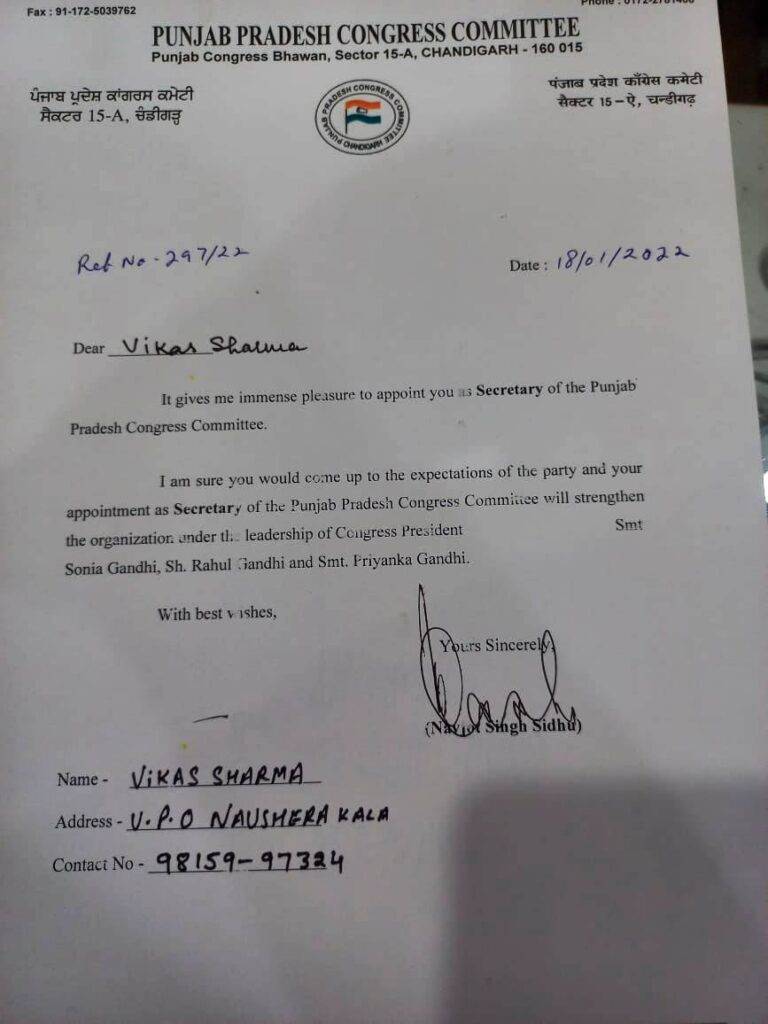 Fax : 91-172-5039762
PUNJAB PRADESH CONGRESS COMMITTEE
Punjab Congress Bhawan, Sector 15-A, CHANDIGARH - 160 015
ਪੰਜਾਬ ਪ੍ਰਦੇਸ਼ ਕਾਂਗਰਸ ਕਮੇਟੀ
ਸੈਕਟਰ 15-A, ਚੰਡੀਗੜ੍ਹ
PUNJAB PRADESH CONGRESS COMMITTEE
CHANDIGARH
पंजाब प्रदेश काँग्रेस कमेटी
सैक्टर 15-ऐ, चन्डीगढ़
Ref No - 297/22
Date : 18/01/2022
Dear Vikas Sharma
It gives me immense pleasure to appoint you as Secretary of the Punjab
Pradesh Congress Committee.
I am sure you would come up to the expectations of the party and your
appointment as Secretary of the Punjab Pradesh Congress Committee will strengthen
the organization under the leadership of Congress President Smt
Sonia Gandhi, Sh. Rahul Gandhi and Smt. Priyanka Gandhi.
With best wishes,
Yours Sincerely,
(Navjot Singh Sidhu)
Name - VIKAS SHARMA
Address - V.P.O NAUSHERA KALA
Contact No - 98159-97324